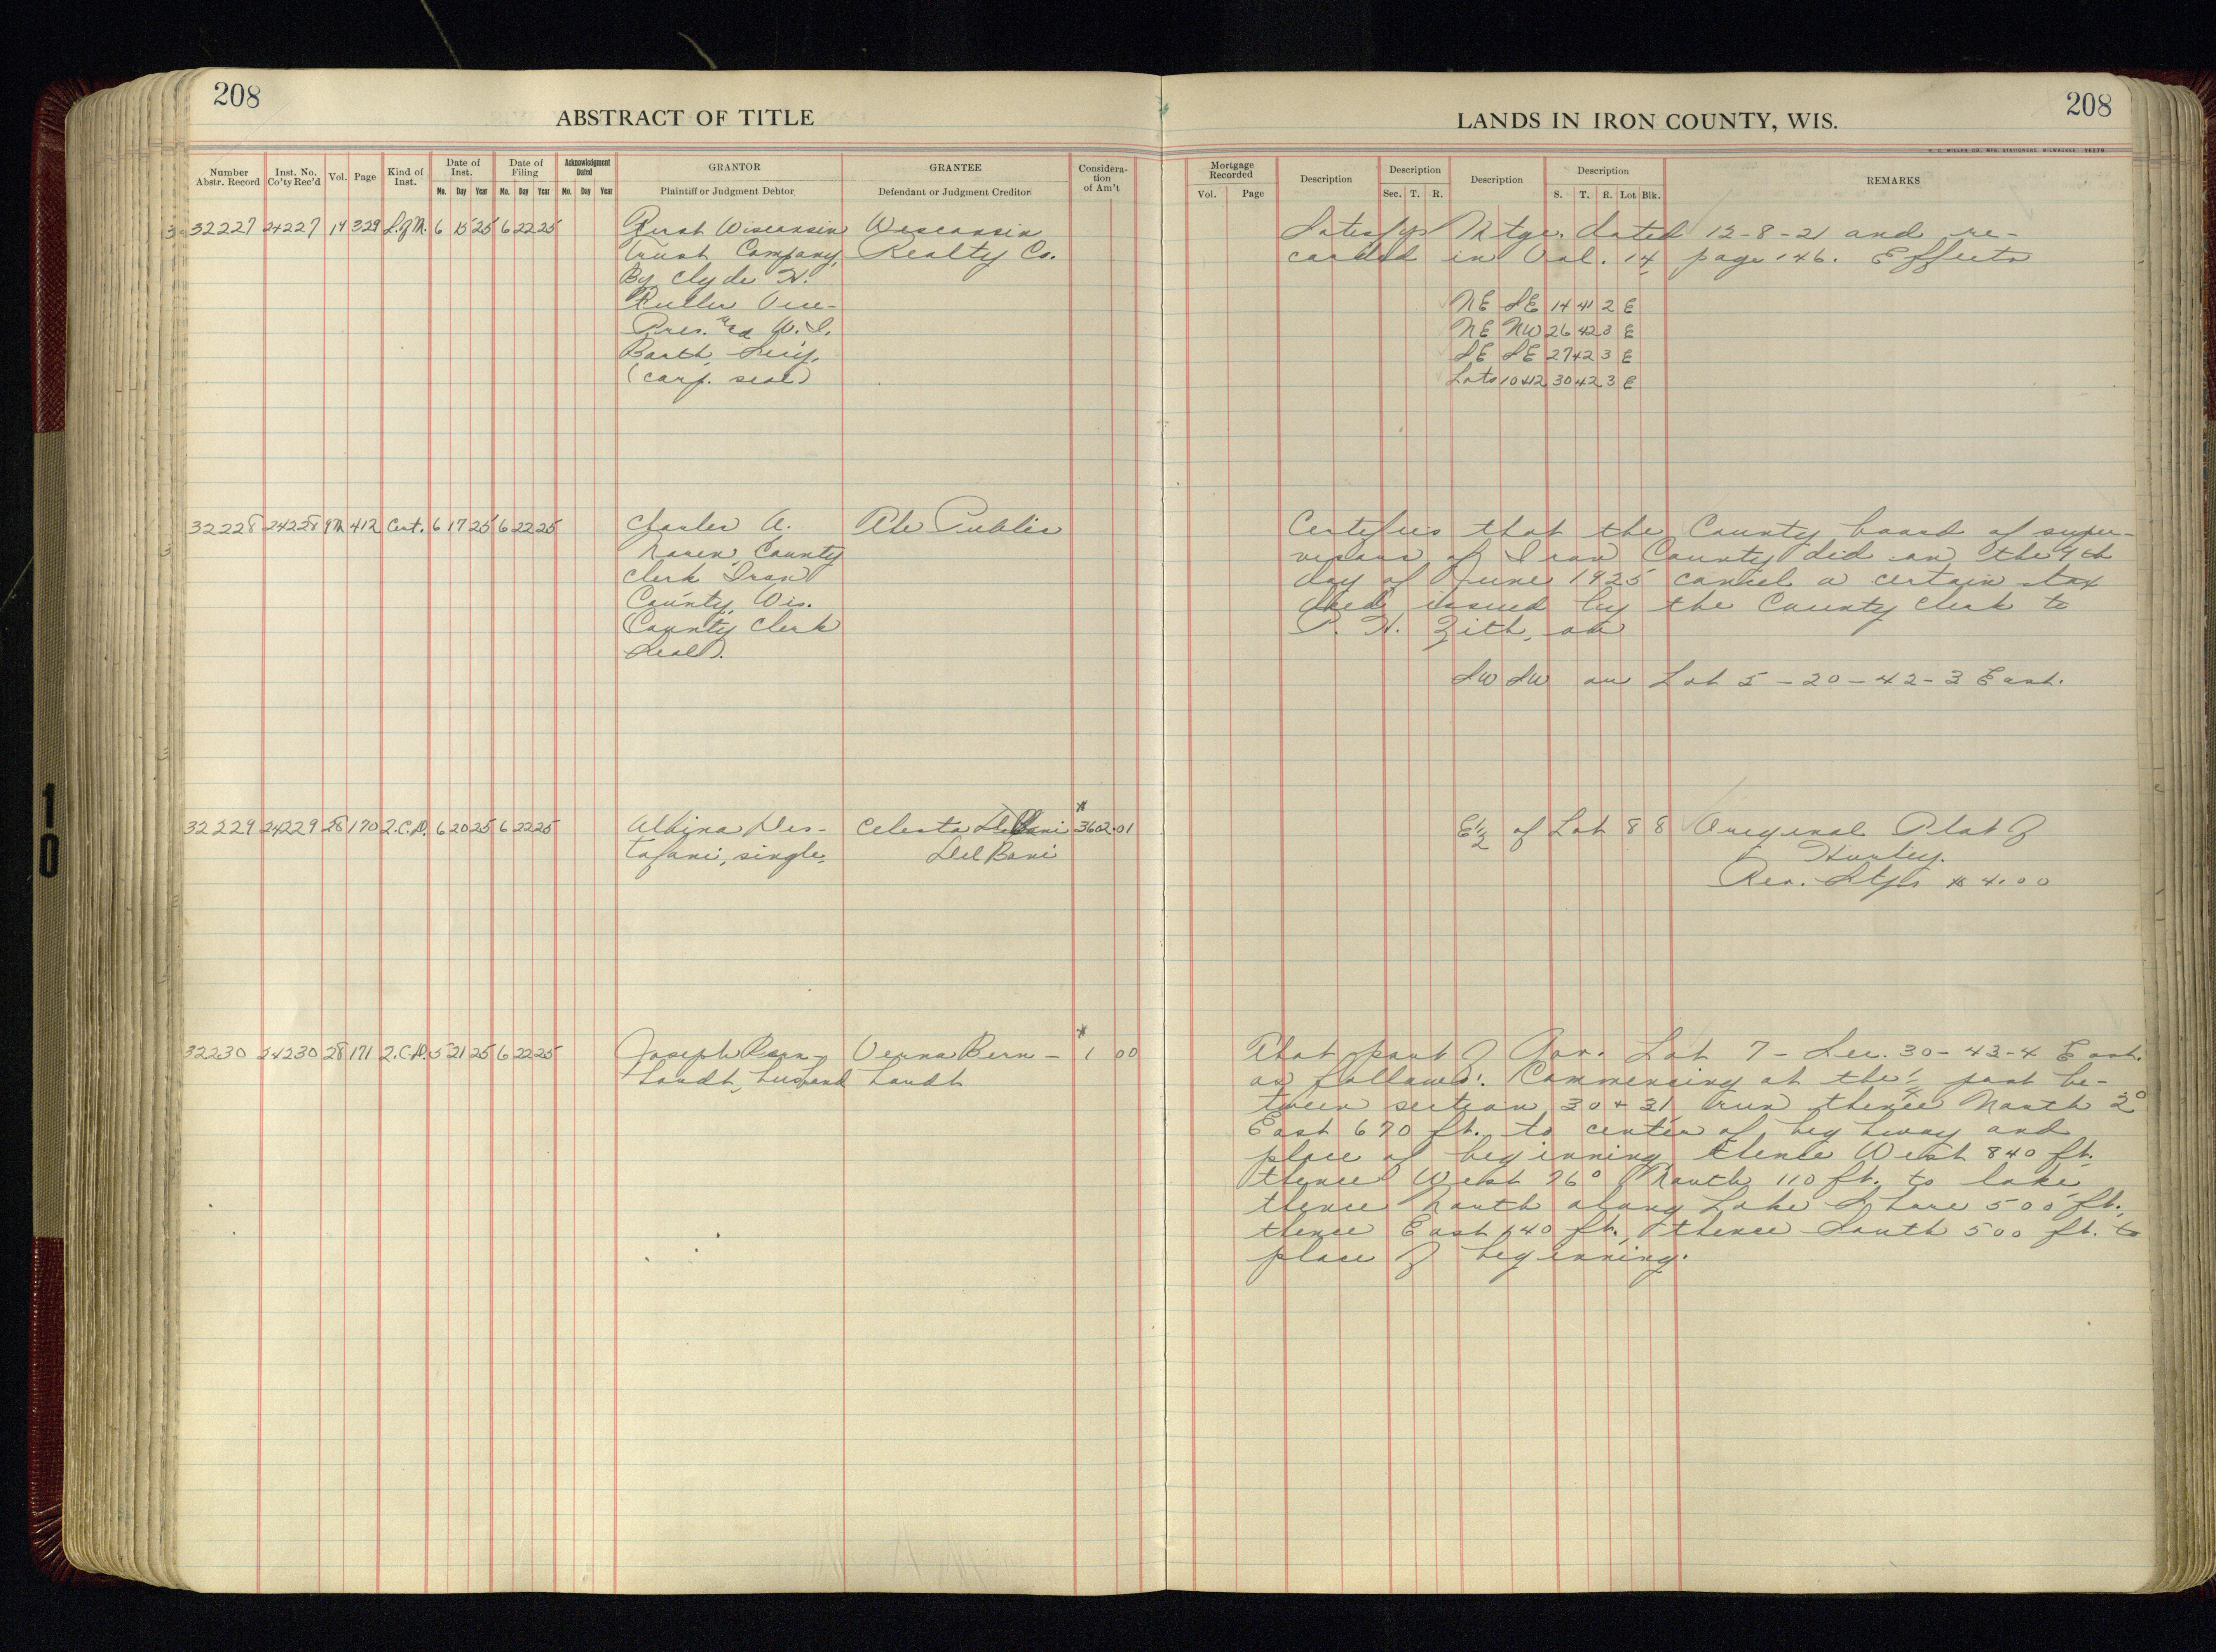 208
ABSTRACT OF TITLE
Number Abstr. Record
Inst. No. Co'ty Rec'd
Vol.
Page
Kind of Inst.
Date of Inst.
Mo. Day Year
Date of Filing
Mo. Day Year
Acknowledgment Dated
Mo. Day Year
GRANTOR
Plaintiff or Judgment Debtor
GRANTEE
Defendant or Judgment Creditor
Consideration of Am't
32227 24227 14 329 S.of M. 6 15 25 6 22 25 First Wisconsin Wisconsin
Trust Company, Realty Co.
By Clyde H.
Fuller Vice-
Pres. and W.I.
Barth, Sec'y.
(corp. seal)
32228 24228 9M 412 Cert. 6 17 25 6 22 25 Charles A. The Public
County
Clerk Iron
County, Wis.
(County Clerk
Seal).
32229 24229 28 170 Q.C.D. 6 20 25 6 22 25 Albina Nes- Celesta $3602.01
tafani, single, Del Bani
32230 24230 28 171 Q.C.D. 5 21 25 6 22 25 Joseph Bern- Verna Bern- $1 00
hardt, husband hardt
208
LANDS IN IRON COUNTY, WIS.
H. C. MILLER CO., MFG. STATIONERS, MILWAUKEE
Mortgage Recorded
Vol. Page
Description
Description
Sec. T. R.
Description
Description
S. T. R. Lot Blk.
REMARKS
Satisfys Mtge. dated 12-8-21 and re-
corded in Vol. 14 page 146. Effects
NE SE 14 41 2 E
NE NW 26 42 3 E
SE SE 27 42 3 E
Lots 10+12 30 42 3 E
Certifies that the County board of super-
visors of Iron County did on the 9th
day of June 1925 cancel a certain tax
deed issued by the County Clerk to
P. H. on
SW SW or Lot 5-20-42-3 East.
E½ of Lot 8 8 Original Plat of
Hurley.
Rev. Stps $4.00
That part of Gov. Lot 7 - Sec. 30-43-4 East.
as follows: Commencing at the ¼ post be-
tween section 30 + 31, run thence North 2°
East 670 ft. to center of highway and
place of beginning, thence West 840 ft.
thence West 76° North 110 ft. to lake,
thence North along Lake Shore 500 ft.,
thence East ft., thence South 500 ft. to
place of beginning.
10